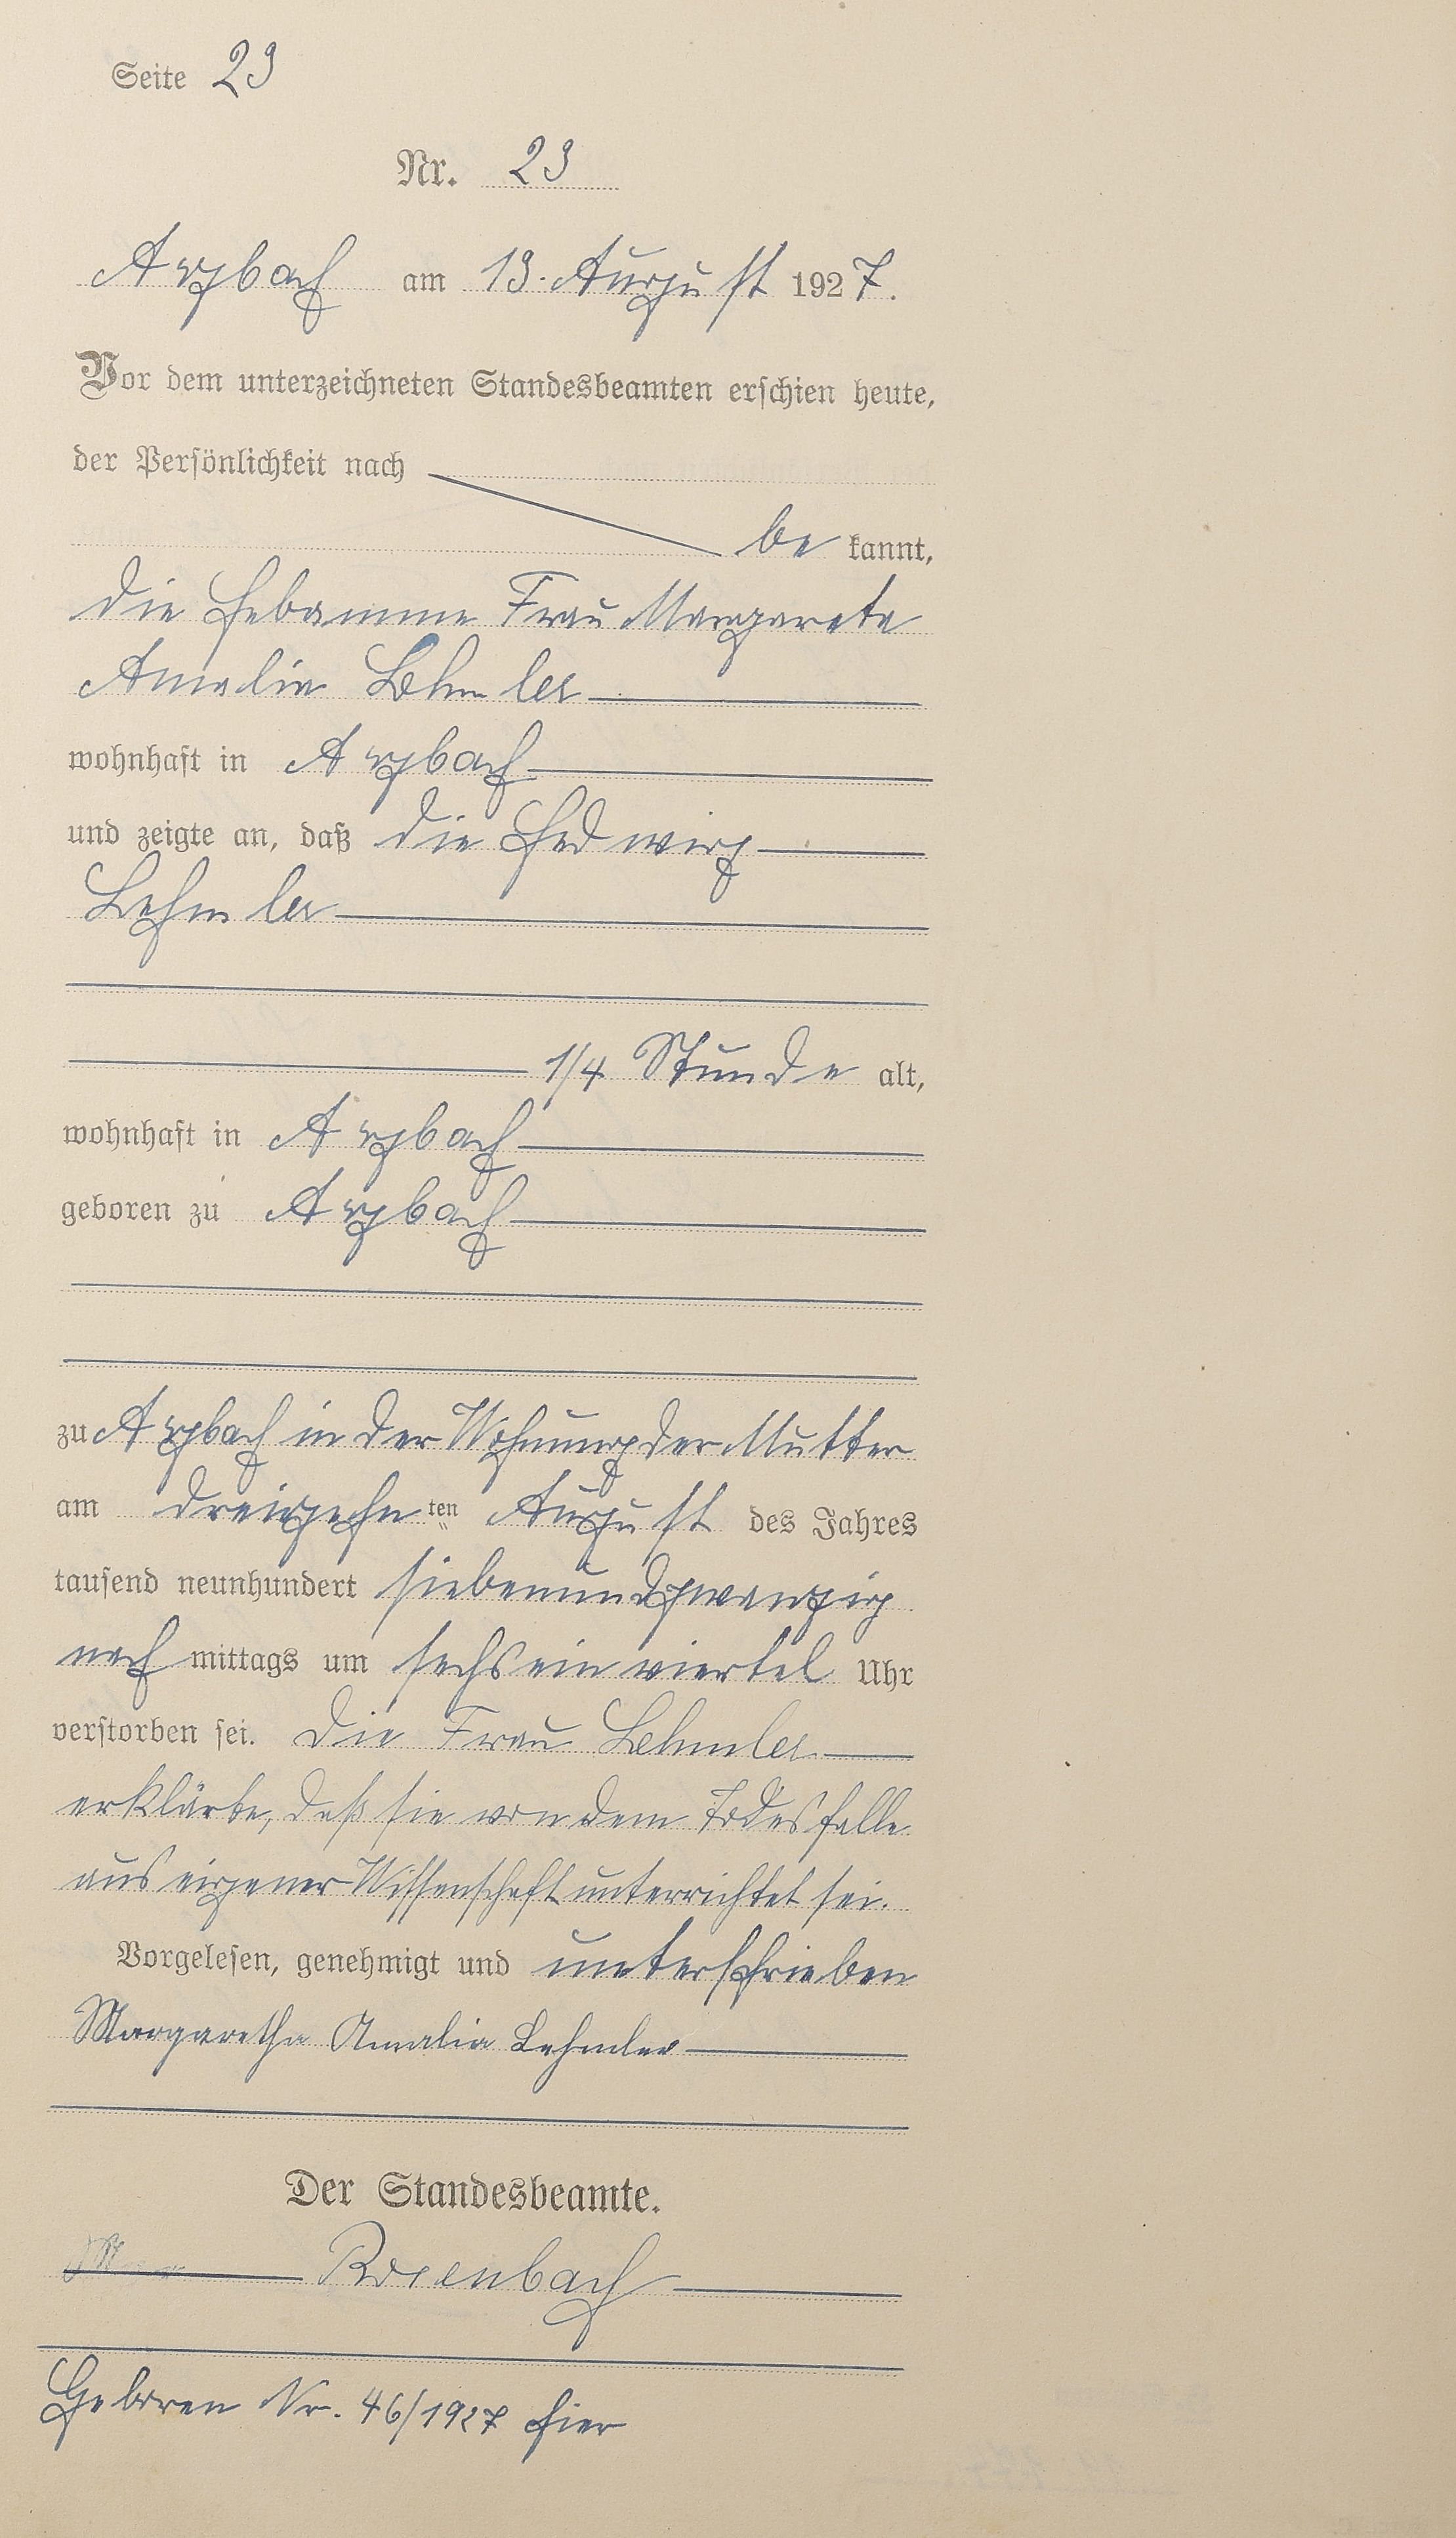 Seite 23
Nr. 23
Arzbach am 13. August 1927.
Vor dem unterzeichneten Standesbeamten erschien heute,
der Persönlichkeit nach
be kannt,
die Hebamme Frau Margareta
Amalia Lehmler
wohnhaft in Arzbach
und zeigte an, daß die Hedwig
Lehmler
1/4 Stunde alt,
wohnhaft in Arzbach
geboren zu Arzbach
zu Arzbach in der Wohnung der Mutter
am dreizehn ten August des Jahres
tausend neunhundert siebenundzwanzig
nach mittags um sechs ein viertel Uhr
verstorben sei. Die Frau Lehmler
erklärte, daß sie von dem Todesfalle
aus eigener Wissenschaft unterrichtet sei.
Vorgelesen, genehmigt und unterschrieben
Margaretha Amalia Lehmler
Der Standesbeamte.
Rosenbach
Geboren Nr. 46/1927 hier